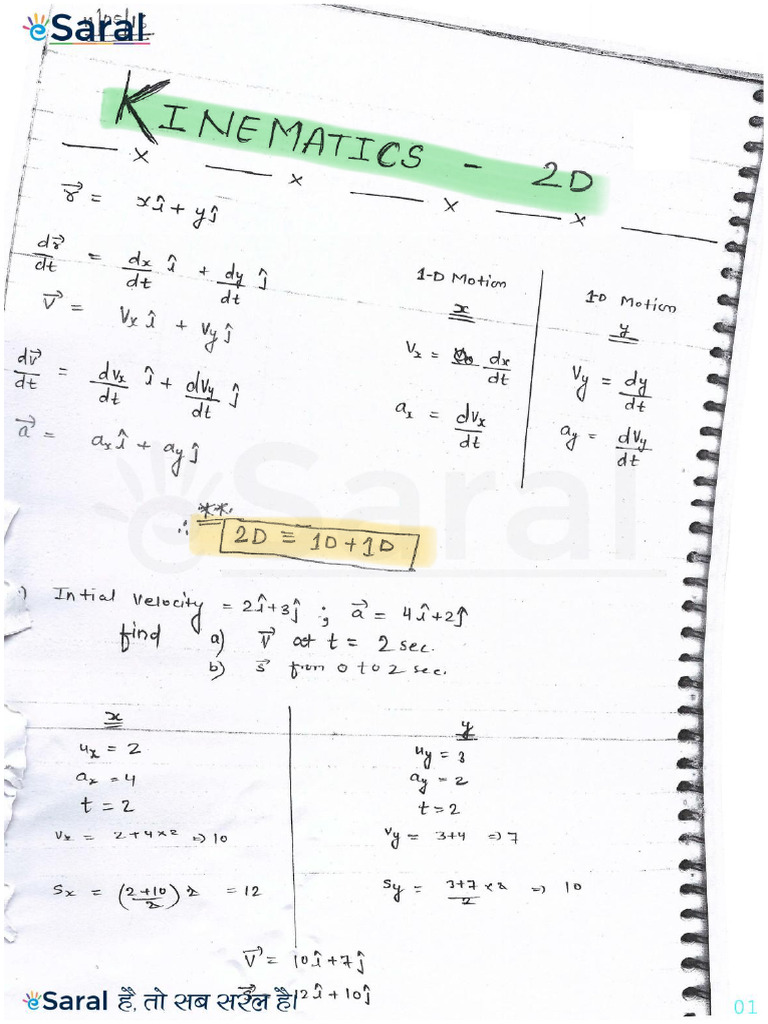 eSaral
KINEMATICS - 2D
r⃗ = xî + yĵ
dr⃗/dt = dx/dt î + dy/dt ĵ
v⃗ = Vx î + Vy ĵ
dv⃗/dt = dVx/dt î + dVy/dt ĵ
a⃗ = ax î + ay ĵ
1-D Motion
x
Vx = dx/dt
ax = dVx/dt
1-D Motion
y
Vy = dy/dt
ay = dVy/dt
**
∴ 2D ≡ 1D + 1D
eSaral
Intial Velocity = 2î+3ĵ ; a⃗ = 4î+2ĵ
find a) V⃗ at t = 2 sec.
b) s⃗ from 0 to 2 sec.
x
ux = 2
ax = 4
t = 2
Vx = 2+4×2 => 10
Sx = (2+10/2) 2 = 12
y
uy = 3
ay = 2
t = 2
Vy = 3+4 => 7
Sy = 3+7/2 × 2 => 10
V⃗ = 10î + 7ĵ
2î + 10ĵ
eSaral है, तो सब सरल है।
01